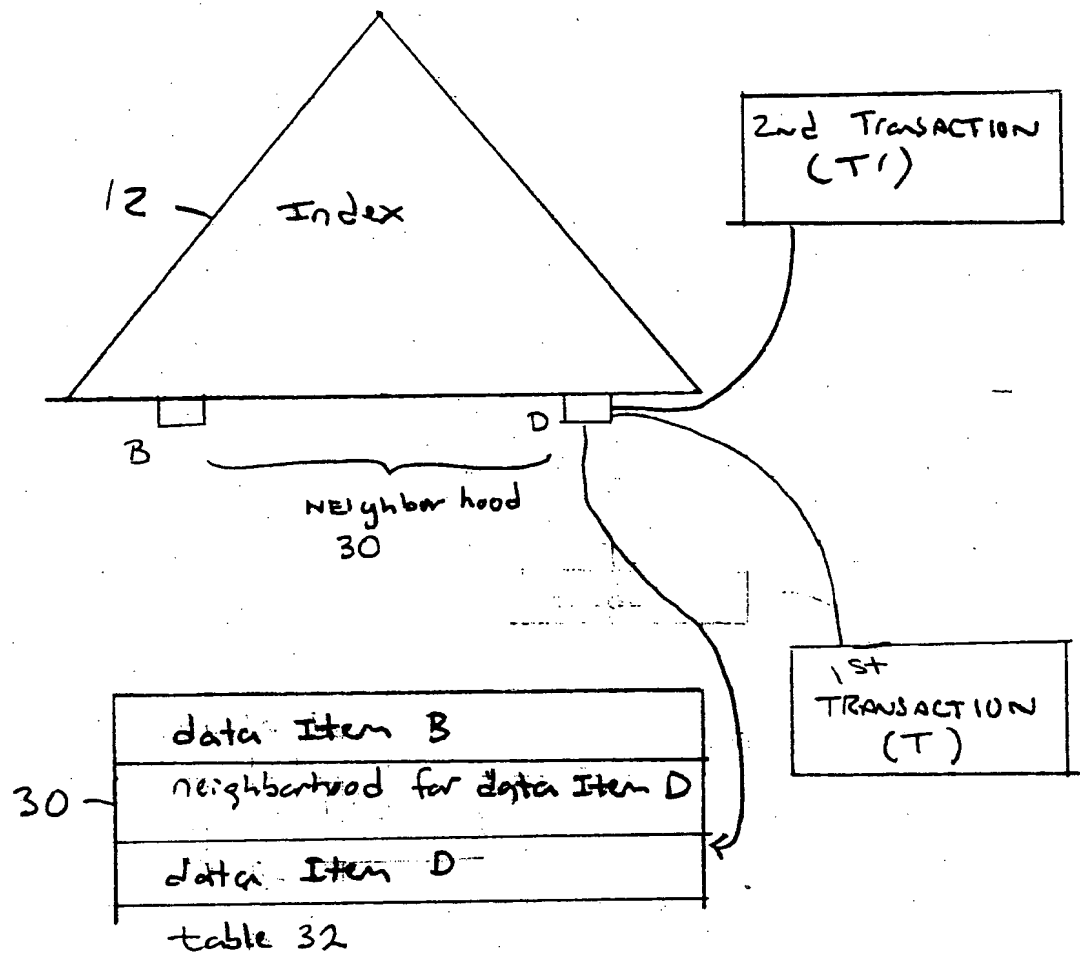 2nd TransACTION
(T')
12
Index
B
D
NEIghbor hood
30
1st
TRANSACTION
(T)
data Item B
30
neighborhood for data Item D
data Item D
table 32